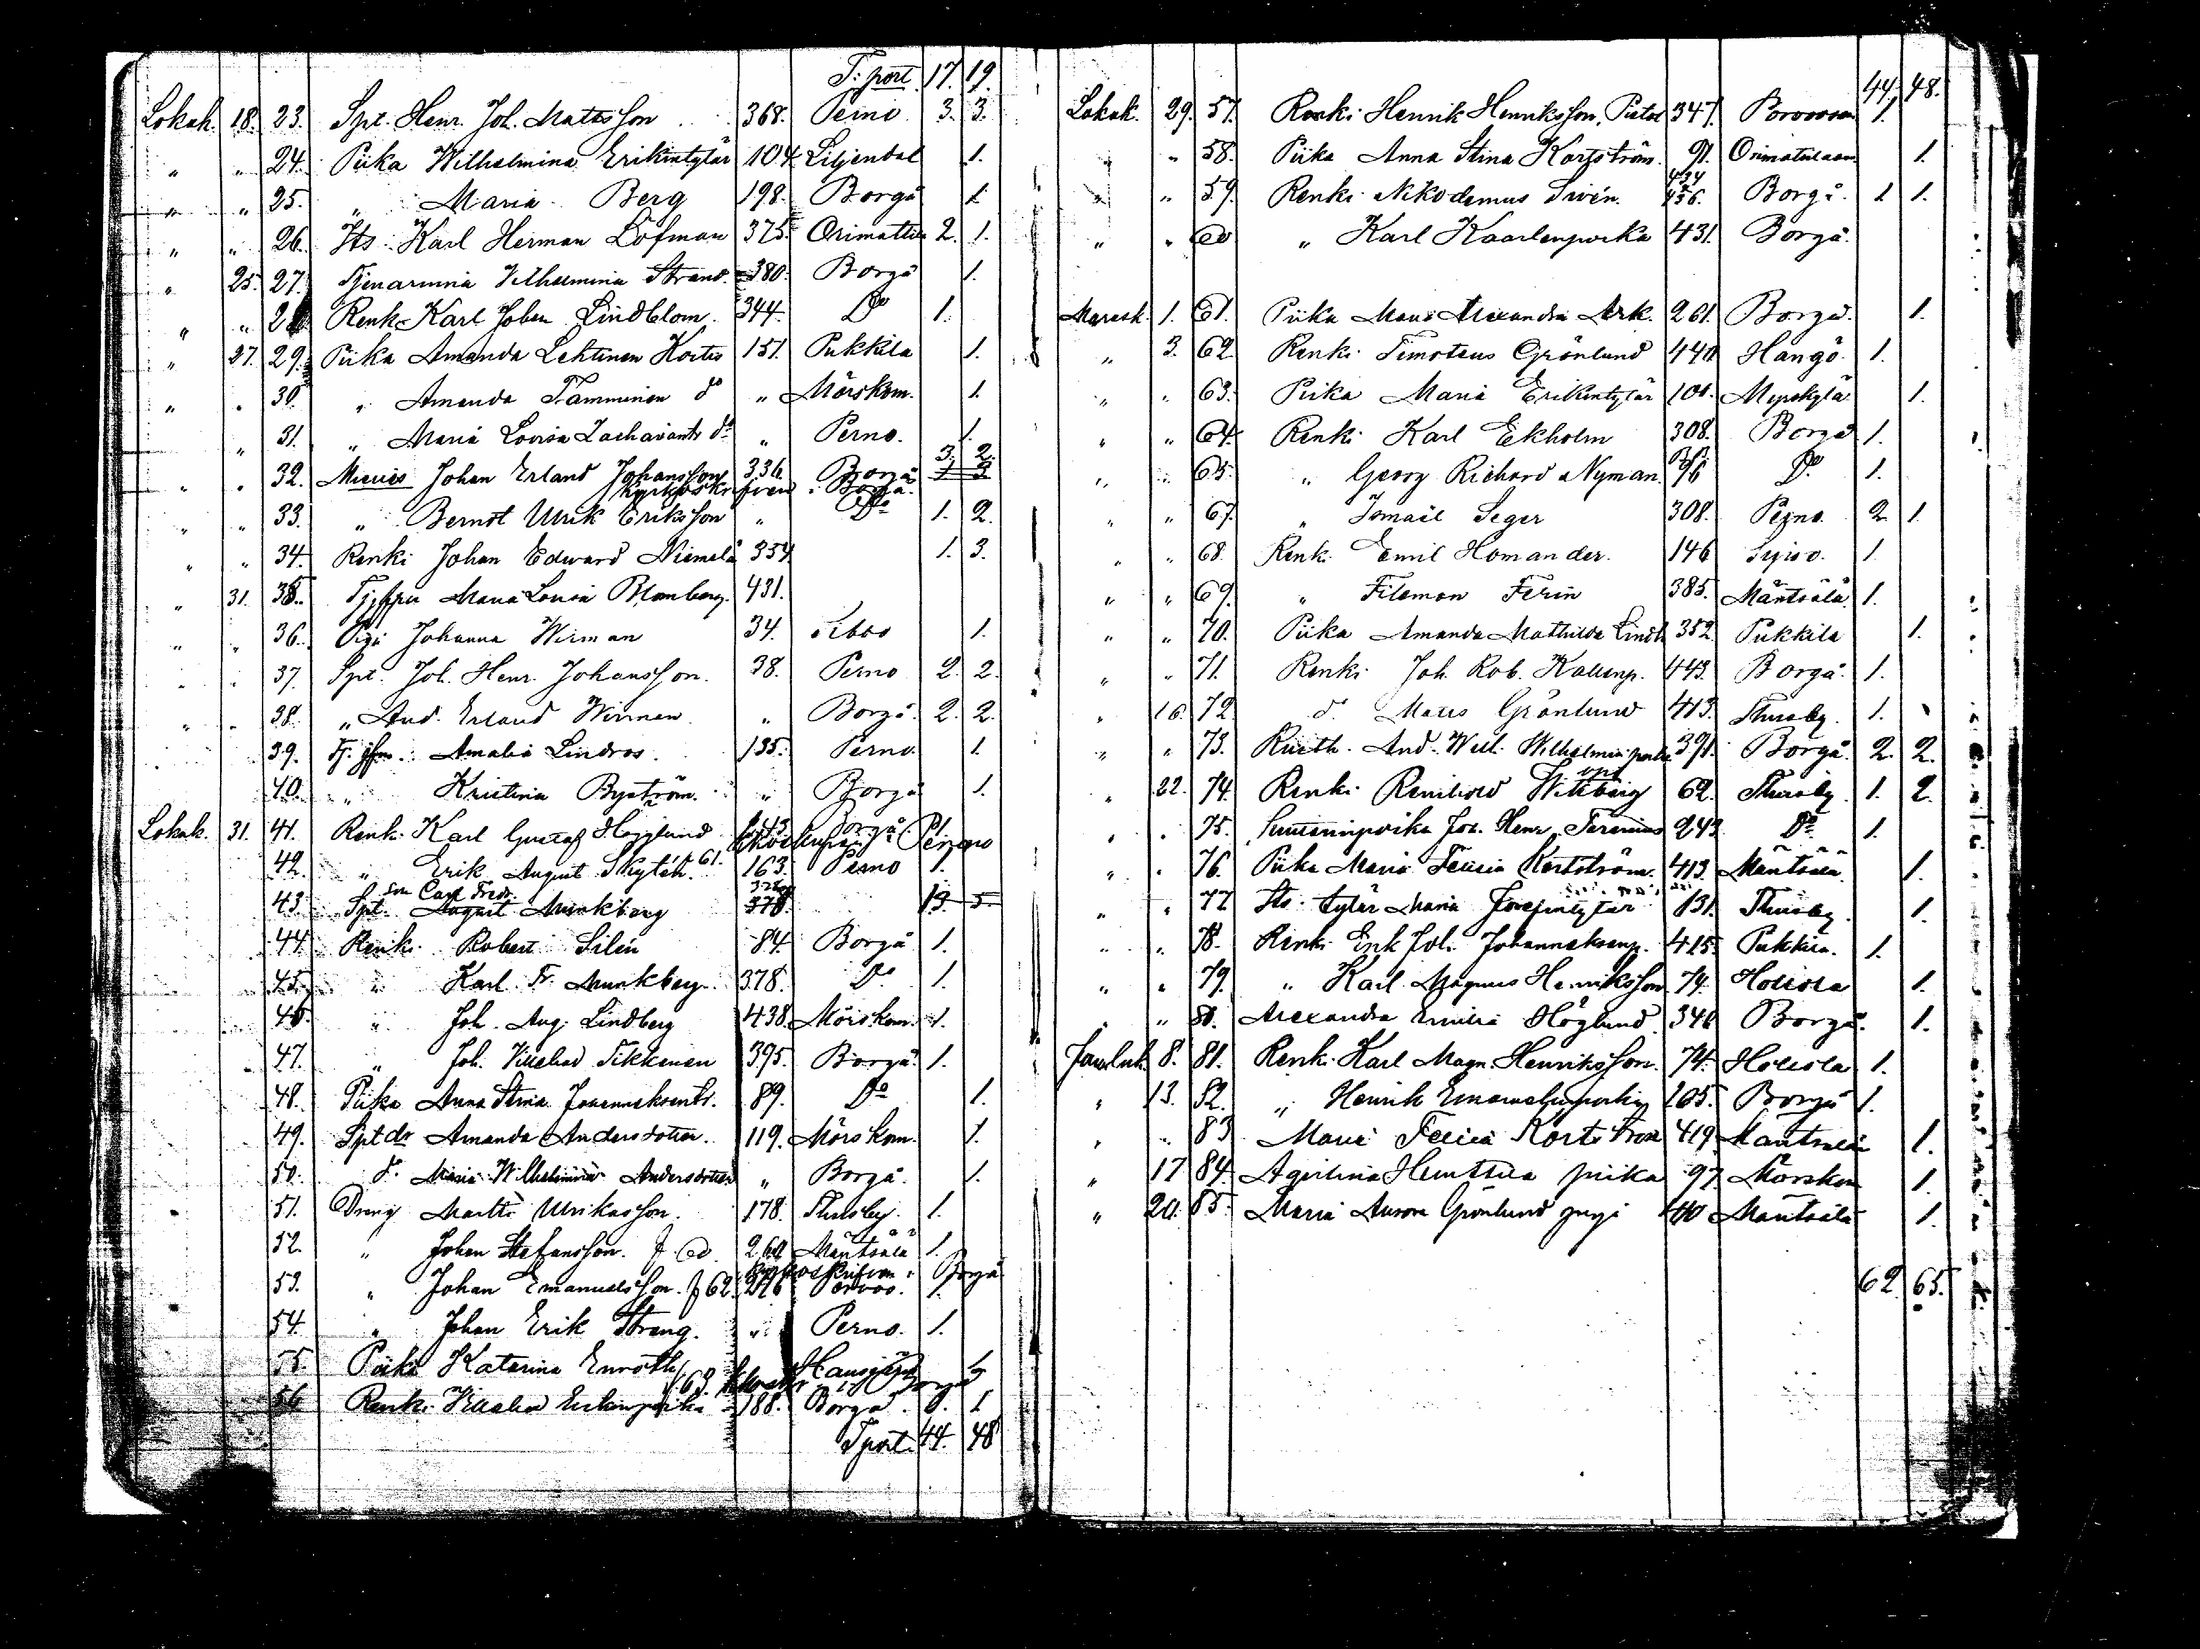 T. port 17. 19.
Lokak. 18. 23. Spt. Henr. Joh. Mattsson 368. Perno 3. 3.
" " 24. Piika Wilhelmina Erikintytär 104. Liljendal 1.
" " 25. " Maria Berg 198. Borgå 1.
" " 26. Its. Karl Herman Löfman 375. Orimattila 2. 1.
" 25. 27. Tjenarinna Vilhelmina Strand. 380. Borgå 1.
" " 28. Renk. Karl Johan Lindblom. 344. Do 1.
" 27. 29. Piika Amanda Lehtinen Kortis 151. Pukkila 1.
" " 30. " Amanda Tamminen do " Mörskom. 1.
" " 31. " Maria Lovisa Zachariantr do " Perno. 1.
3. 2.
" " 32. Mieies Johan Erland Johansson 336. Borgå
kyrkoskrifven i Borgå.
" " 33. " Berndt Ulrik Eriksson " Do 1. 2.
" " 34. Renki Johan Edward Niemelä 354. 1. 3.
" 31. 35. Maria Lovisa Blomberg. 431.
" " 36. Piga Johanna Wirman 34. Sibbo 1.
" " 37. Spt. Joh. Henr. Johansson. 38. Perno 2. 2.
" " 38. " And. Erland Wirman " Borgå. 2. 2.
39. Tj. Amalia Lindros. 135. Perno. 1.
40. " Kristina Byström. " Borgå 1.
Lokak. 31. 41. Renk. Karl Gustaf Högglund Borgå
42. " Erik August Skytén. 61. 163. Perno 1.
son Carl Fredr.
43. Spt. August Munkberg 378. 13 5
44. Renk. Robert Silén 84. Borgå 1.
45. " Karl Fr. Munkberg 378. Do 1.
46. " Joh. Aug. Lindberg 438. Mörskom. 1.
47. " Joh. Tikkanen 395. Borgå. 1.
48. Piika Anna Stina 89. Do 1.
49. Sptdr Amanda Andersdotter. 119. Mörskom. 1.
50. do. Maria Wilhelmina Andersdotter " Borgå. 1.
51. Dreng Martti Ulrikasson. 178. Thusby. 1.
52. " Johan Stefansson. f. 60. 260 Mäntsälä 1.
kyrkoskrifven i Borgå
53. " Johan Emanuelsson. f 62. 276 Porvoo. 1.
54. " Johan Erik Streng. " Perno. 1.
55. Piika Katarina Enroth Hausjärvi 1.
56. Renki 188. Borgå. 1
T port. 44. 48
44. 48.
Lokak. 29. 57. Renki Henrik Henriksson, 347. Porvoosen 1.
" " 58. Piika Anna Stina Kortström. 91. Orimatilaan 1.
" " 59. Renki Nikodemus Sivén. 456. Borgå. 1 1.
" " 60 " Karl Kaarlenpoika 431. Borgå.
Marrask. 1. 61. Piika Maria Alexandra Ark. 261. Borgå. 1.
" 3. 62. Renki Timoteus Grönlund 440. Hangö. 1.
" " 63. Piika Maria Erikintytär 101. Myrskylä 1.
" " 64. Renki Karl Ekholm 308. Borgå 1.
" " 65. " Georg Richard Nyman 96 Do 1.
" " 67. " Ismael Seger 308. Perno. 2. 1.
" " 68. Renk. Emil Homander. 146 1.
" " 69. " Filemon Ferin 385. Mäntsälä. 1.
" " 70. Piika Amanda Mathilda 352. Pukkila 1.
" " 71. Renki Joh. Rob. Kallenp. 443. Borgå. 1.
" 16. 72. do. Matts Grönlund 413. Thusby. 1.
" " 73. And. Will. 391. Borgå. 2. 2.
" 22. 74. Renki Reinhold Wittberg 62. Thusby. 1. 2.
" " 75. Joh. Henr. 243. Do 1.
" " 76. Piika Maria Felicia Kortström. 419. Mäntsälä. 1.
" " 77. Its. tytär Maria Josefintytär 131. Thusby. 1.
" " 78. Renki Erik Joh. Johanneksenp. 415. Pukkila. 1.
" " 79. " Karl Magnus Henriksson 74. Hollola 1.
" " 80. Alexandra Emilia Höglund 346 Borgå. 1.
Jouluk. 8. 81. Renki Karl Magn. Henriksson. 74. Hollola 1.
" 13. 82. " Henrik 165. Borgå 1.
" " 83. Maria Felicia Kortström 419. Mäntsälä 1.
" 17 84. Agustina Hunttila piika 97. Mörskom 1.
" 20. 85. Maria Aurora Grönlund 40 Mäntsälä 1.
62. 65.